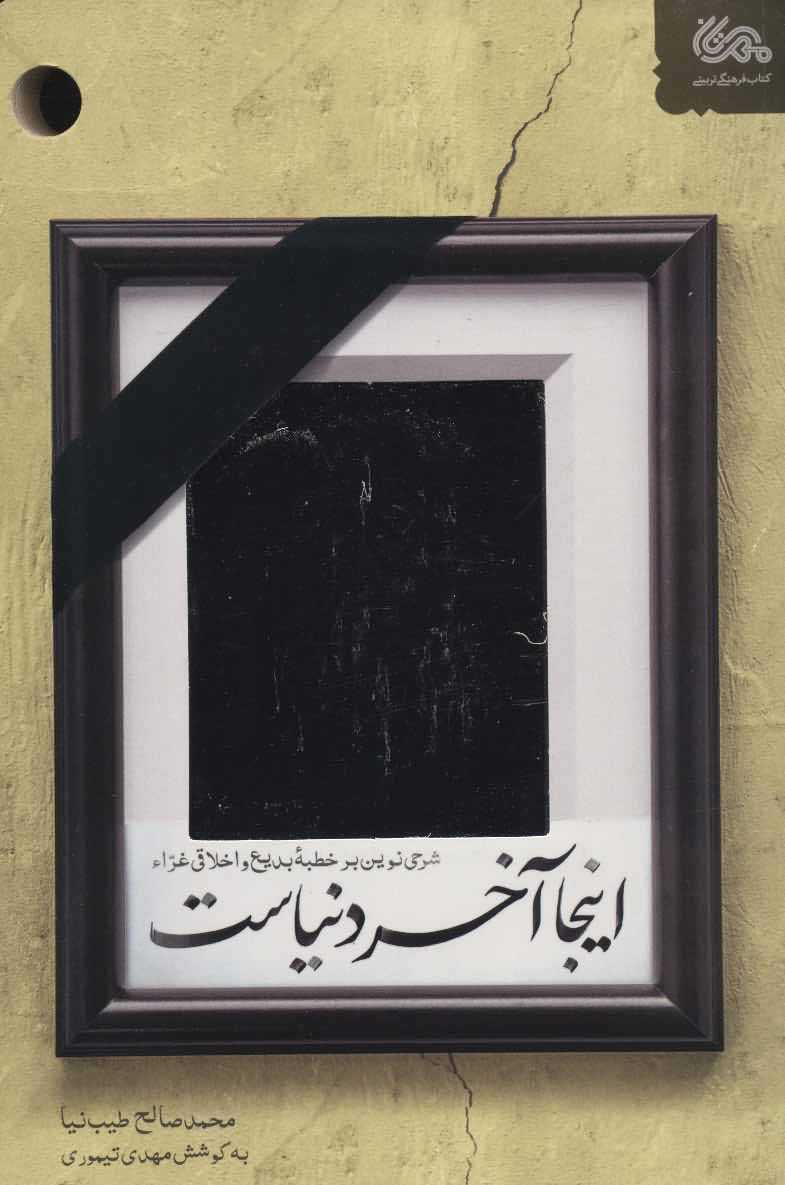 مهرستان
کتاب فرهنگی تربیتی
شرحی نوین بر خطبهٔ بدیع و اخلاقی غرّاء
اینجا آخر دنیاست
محمد صالح طیب‌نیا
به کوشش مهدی تیموری